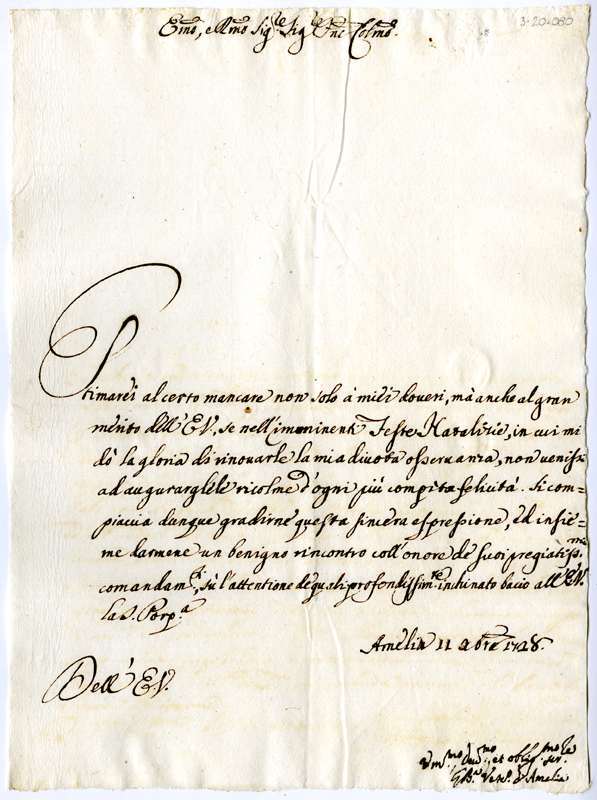 3-20-080
Emo, e Rmo Sig.re Sig.re e Pñe Colmo.
Stimarei al certo mancare non solo à miei doveri, mà anche al gran
mérito dell' E.V., se nell' imminenti Feste Natalizie, in cui mi
dò la gloria di rinovarle la mia divota osservanza, non venissi
ad augurargliele ricolme d'ogni più compita felicità. Si com=
piaccia dunque gradirne questa sincera espressione, ed insie=
me darmene un benigno rincontro coll' onore de' suoi pregiatiss.mi
comandam.ti, sù l'attentione de quali profondissim.te inchinato bacio all' E.V.
la S. Porp.a
Amelia 11 Xbre 1728.
Dell' E.V.
Vm̃s.mo Dev.mo, et oblig.mo ser.re
G.B.a Vesc.o d'Amelia